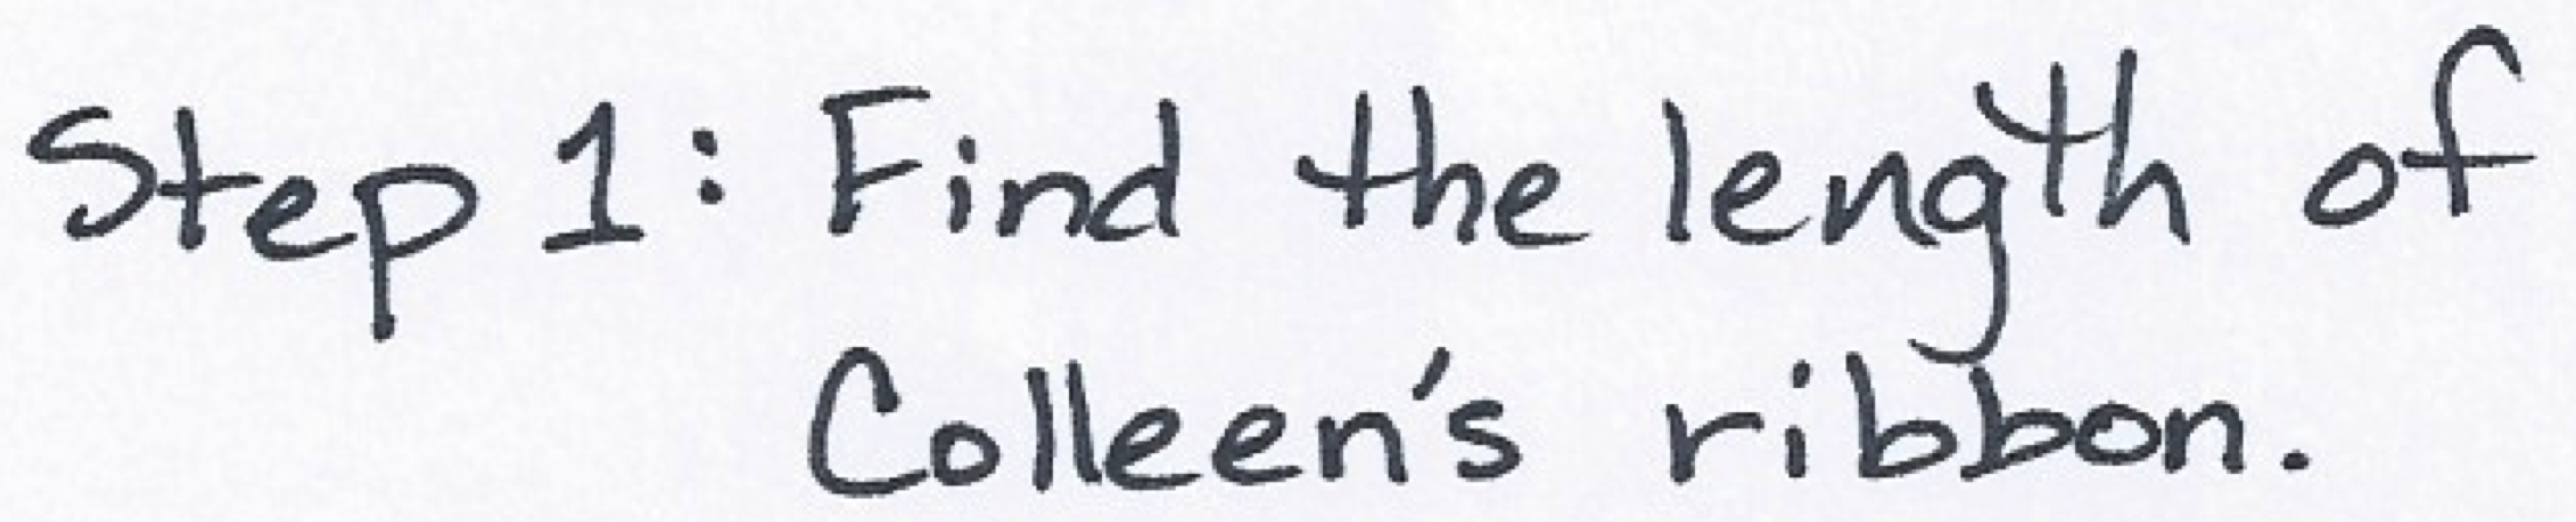 Step 1: Find the length of
Colleen's ribbon.